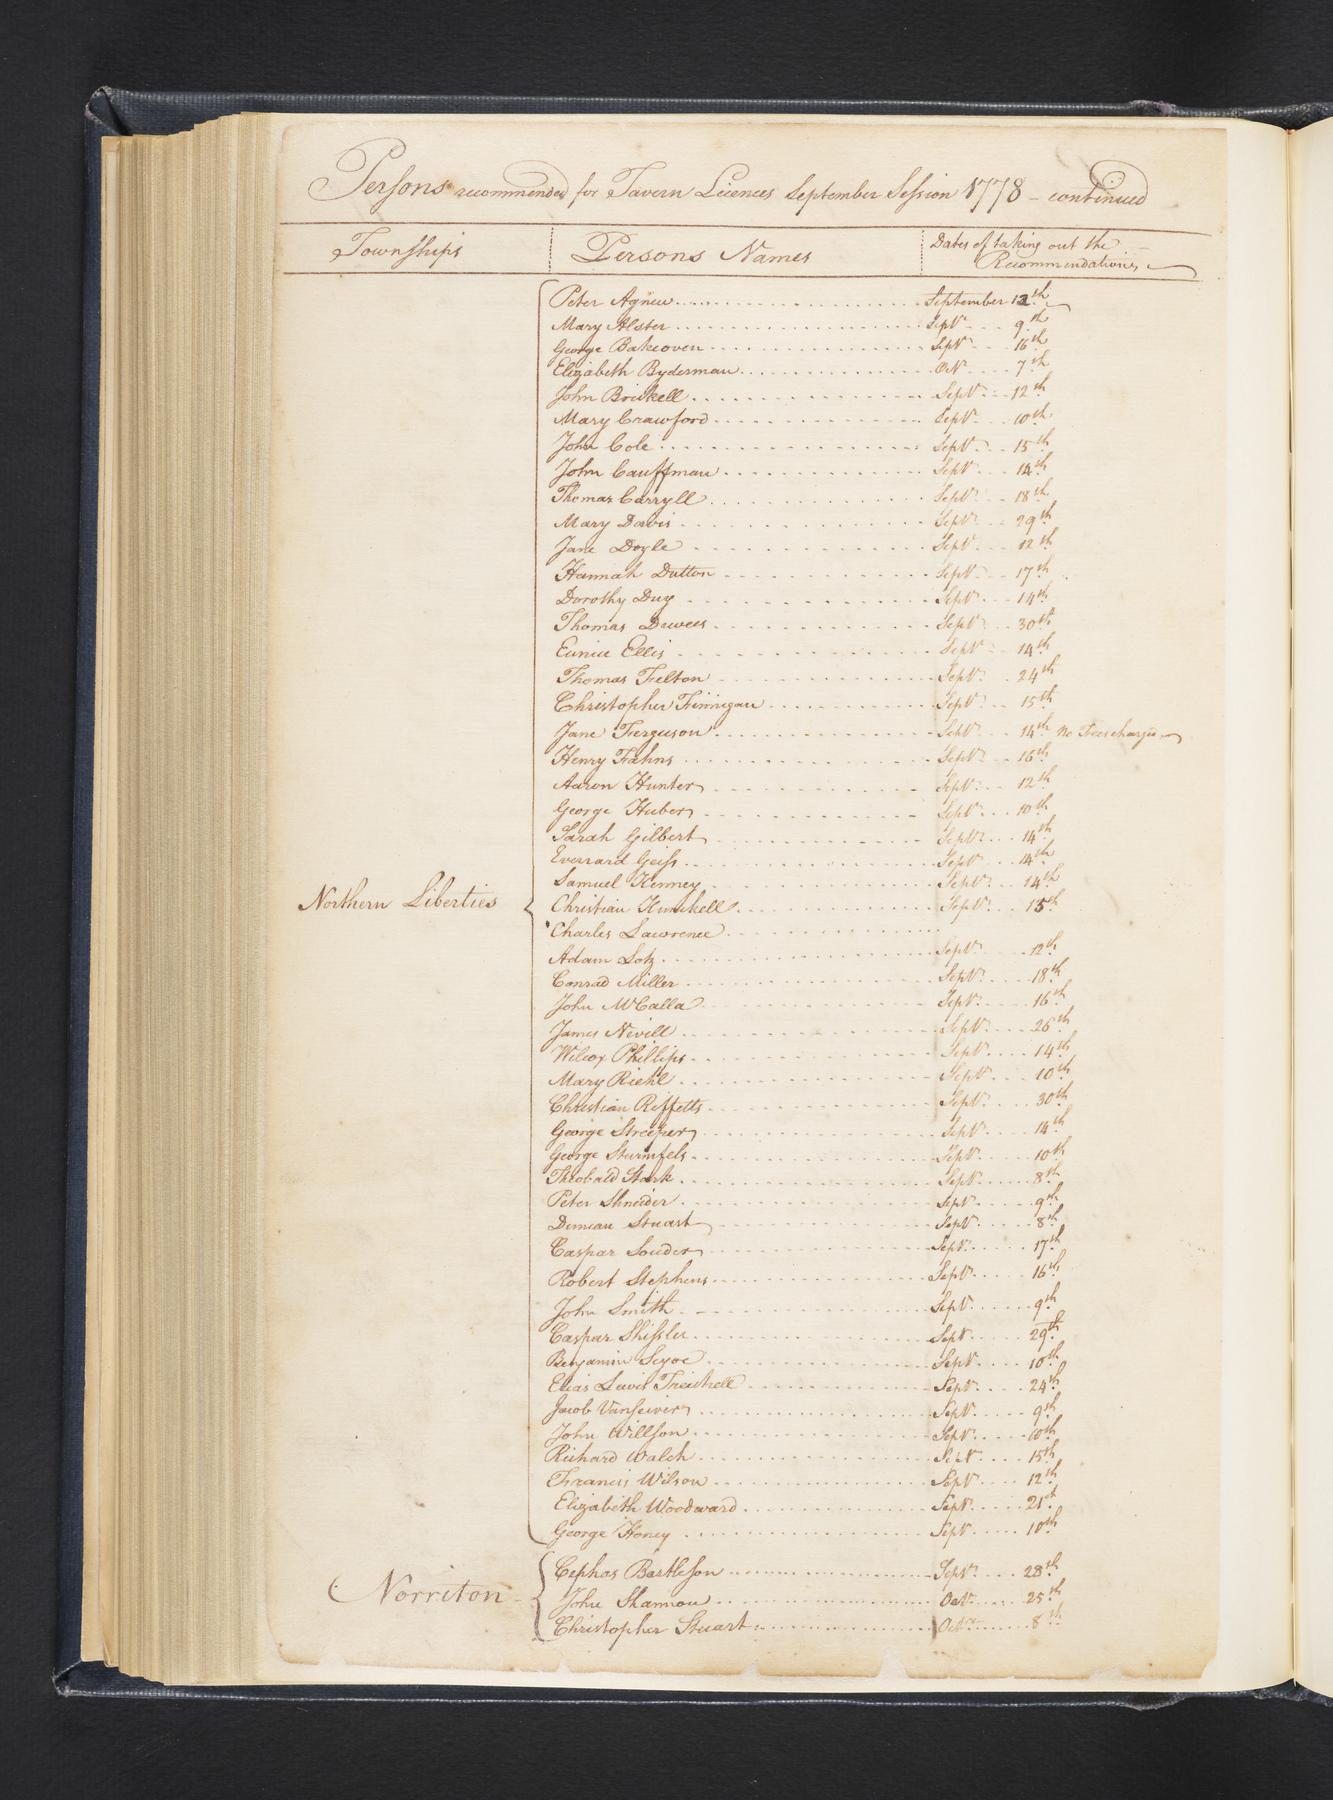 Persons recommended for Tavern Licences September Session 1778 - continued
Townships Persons Names Dates of taking out the Recommendations
Peter Agnew September 12th
Mary Alster Sepr 9th
George Bakeoven Sepr 16th
Elizabeth Byderman Octr 7th
John Brickell Sepr 12th
Mary Crawford Sepr 10th
John Cole Sepr 15th
John Cauffman Sepr 14th
Thomas Carryll Sepr 18th
Mary Davis Sepr 29th
Jane Doyle Sepr 12th
Hannah Dutton Sepr 17th
Dorothy Duy Sepr 14th
Thomas Dewees Sepr 30th
Eunice Ellis Sepr 14th
Thomas Felton Sepr 24th
Christopher Finnigan Sepr 15th
Jane Ferguson Sepr 14th No Fees charge
Henry Fahns Sepr 15th
Aaron Hunter Sepr 12th
George Huber Sepr 10th
Sarah Gilbert Sepr 14th
Everrard Geiss Sepr 14th
Samuel Kenney Sepr 14th
Northern Liberties Christian Kunckell Sepr 15th
Charles Lawrence
Adam Lotz Sepr 12th
Conrad Miller Sepr 18th
John McCalla Sepr 16th
James Nevill Sepr 26th
Wilcox Phillips Sepr 14th
Mary Riehl Sepr 10th
Christian Riffetts Sepr 30th
George Streeper Sepr 14th
George Sturmfels Sepr 10th
Theobald Stark Sepr 8th
Peter Shneider Sepr 9th
Duncan Stuart Sepr 8th
Caspar Souder Sepr 17th
Robert Stephens Sepr 16th
John Smith Sepr 9th
Caspar Shissler Sepr 29th
Benjamin Scyoc Sepr 10th
Elias Lewis Treichell Sepr 24th
Jacob Vanseiver Sepr 9th
John Willson Sepr 10th
Richard Walsh Sepr 15th
Francis Wilson Sepr 12th
Elizabeth Woodward Sepr 21st
George Honey Sepr 10th
Norriton Cephas Bartleson Sepr 28th
John Shannon Octr 25th
Christopher Stuart Octr 8th